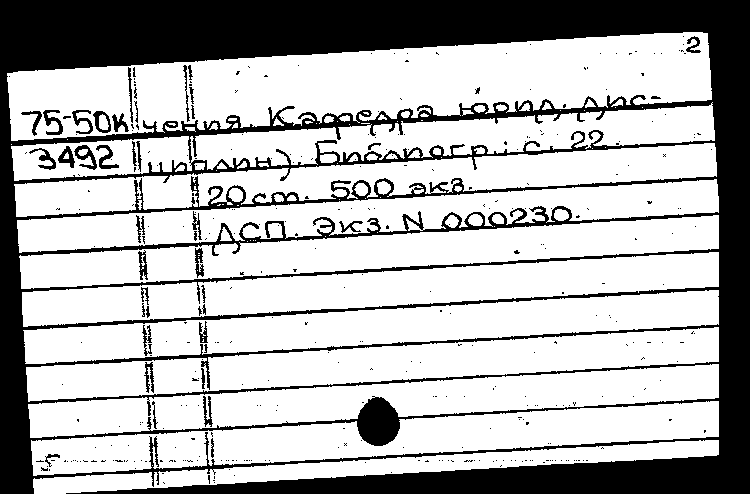 2
75-50к чения. Кафедра юрид. дис-
3492 циплин). Библиогр.: с. 22
20 см. 500 экз.
ДСП. Экз. N 000230.
5